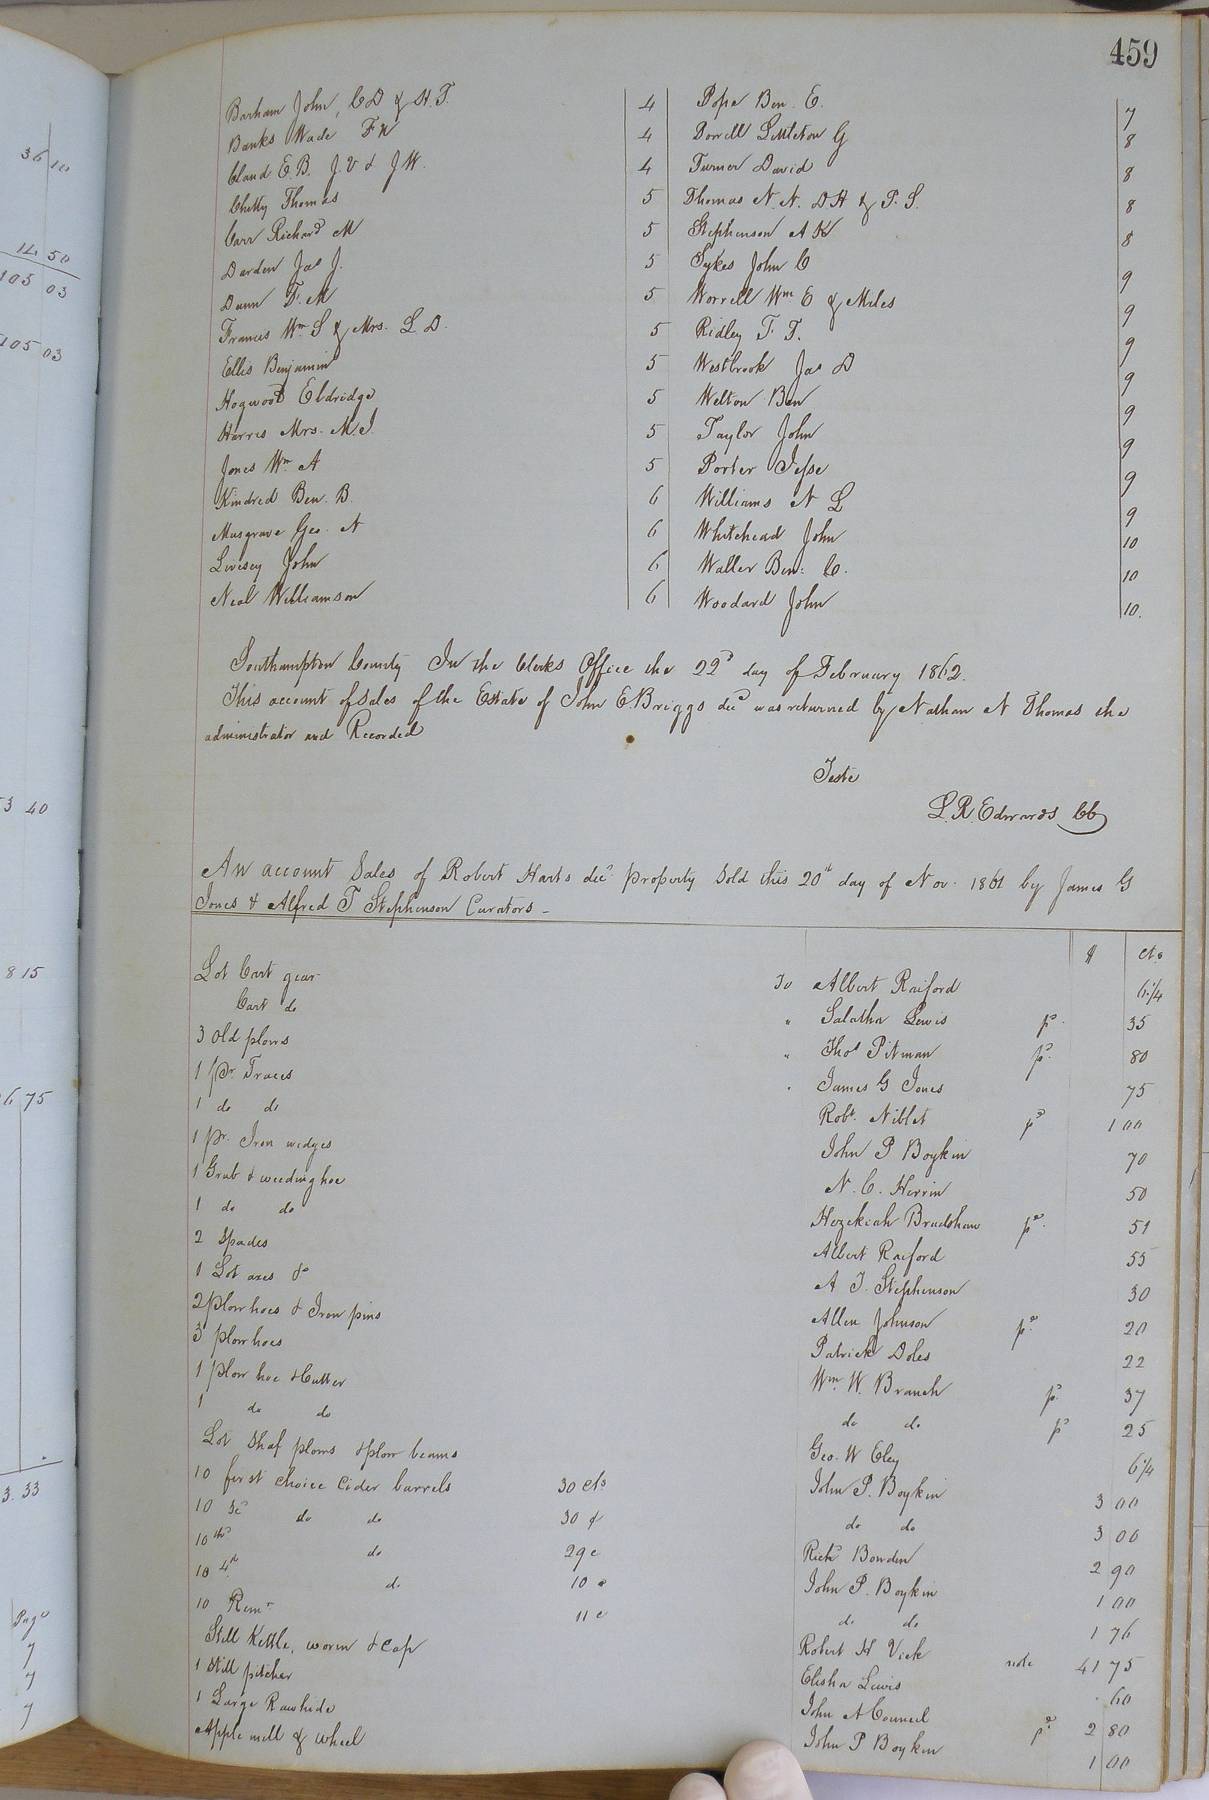 459
Barham John, C D & H. T. 4 Pope Ben. E. 7
Banks Wade F K 4 Porrell Littleton G 8
Claud E. B. J. V & J W. 4 Turner David 8
Chitty Thomas 5 Thomas N. N. D H & P. S. 8
Carr Richard M 5 Stephenson A K 8
Darden Jas J. 5 Sykes John C 9
Dunn F. M 5 Worrell Wm E & Miles 9
Francis Wm S & Mrs. L. D. 5 Ridley T. T. 9
Ellis Benjamin 5 Westbrook Jas D 9
Hogwood Eldridge 5 Welton Ben 9
Harris Mrs. M. J. 5 Taylor John 9
Jones Wm A 5 Porter Jesse 9
Kindred Ben. B. 6 Williams N L 9
Musgrave Geo. N 6 Whitehead John 10
Livesey John 6 Waller Ben: C. 10
Neal Williamson 6 Woodard John 10.
Southampton County In the Clerks Office the 22d day of February 1862.
This account of sales of the Estate of John E. Briggs decd was returned by Nathan N Thomas the
administrator and Recorded
Teste
L. R. Edwards CC
An account Sales of Robert Harts decd property sold this 20th day of Nov. 1861 by James G
Jones & Alfred T Stephenson Curators -
$ cts
Lot Cart gear To Albert Raiford 6 1/4
Cart do " Salathn Lewis pd. 35
3 Old plows " Thos Pitman pd. 80
1 pr. Traces " James G Jones 75
1 do do Robt. Niblet pd 1 00
1 pr. Iron wedges John P Boykin 70
1 Grub & weeding hoe N. C. Herrin 50
1 do do Hezekiah Bradshaw pd. 51
2 Spades Albert Raiford 55
1 Lot axes &c A T. Stephenson 30
2 plow hoes & Iron pins Allen Johnson pd. 20
3 plow hoes Patrick Doles 22
1 plow hoe & Cutter Wm. W. Branch pd. 37
1 do do do do pd 25
Lot Shaf plows & plow beams Geo. W Eley 6 1/4
10 first choice Cider barrels 30 cts John P. Boykin 3 00
10 Sec do do 30 ¢ do do 3 00
10 thd do 29 c Richd Bowden 2 90
10 4th do 10 c John P. Boykin 1 00
10 Remr 11 c do do 1 76
Still Kettle, worm & cap Robert H Vick note 41 75
1 Still pitcher Elisha Lewis . 60
1 Large Rawhide John A Council pd. 2 80
Apple mill & wheel John P Boykin 1 00
36 10
14 50
105 03
105 03
3 40
8 15
6 75
3.33
Page
7
7
7